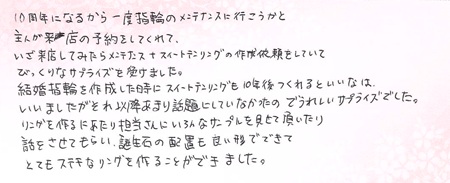 10周年になるから一度指輪のメンテナンスに行こうかと
主人が来店の予約をしてくれて、
いざ来店してみたらメンテナンス+スイートテンリングの作成依頼をしていて
びっくりなサプライズを受けました。
結婚指輪を作成した時にスイートテンリングも10年後つくれるといいなは、
いいましたがそれ以降あまり話題にしていなかたのでうれしいサプライズでした。
リングを作るにあたり担当さんにいろんなサンプルを見せて頂いたり
話をさせてもらい、誕生石の配置も良い形でできて
とてもステキなリングを作ることができました。